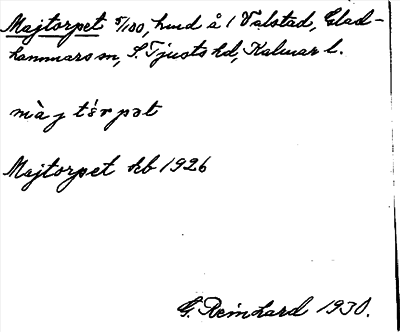 Majtorpet 5/100, hmd å 1 Valstad, Glad-
hammars sn, S. Tjusts hd, Kalmar l.
mà j tér pət
Majtorpet kb 1926
G. Reinhard 1930.